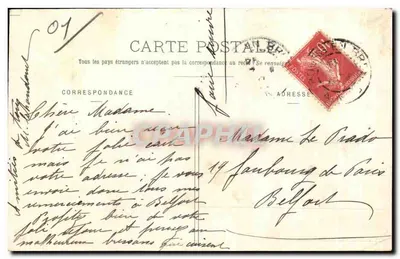 01
CARTE POSTALE
Tous les pays étrangers n'acceptent pas la correspondance au recto. Se renseigner
CORRESPONDANCE
ADRESSE
faire suivre
Chère Madame
J'ai bien reçu
votre jolie carte
mais je n'ai pas
votre adresse. Je vous
envoie donc tous mes
remerciements à Belfort
Profitez bien de votre
joli séjour et pensez au
malheureux
qui cuisent
Amitiés de
Madame Le Prado
19 faubourg de Paris
Belfort
CPARAMA